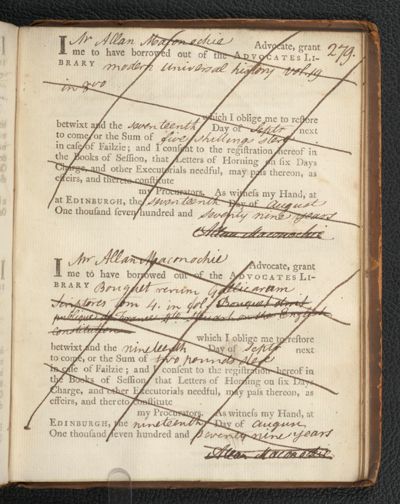 279.
I Mr Allan Maconochie Advocate, grant
me to have borrowed out of the ADVOCATES LI-
BRARY modern universal history vol. 19
in 8vo
which I oblige me to restore
betwixt and the seventeenth Day of Septr next
to come, or the Sum of five shillings Ster
in case of Failzie; and I consent to the registration hereof in
the Books of Session, that Letters of Horning on six Days
Charge, and other Executorials needful, may pass thereon, as
effeirs, and thereto constitute
my Procurators. As witness my Hand, at
at EDINBURGH, the seventeenth Day of August
One thousand seven hundred and seventy nine years
Allan Maconochie
I Mr Allan Maconochie Advocate, grant
me to have borrowed out of the ADVOCATES LI-
BRARY Bouquet rerum Gallicarum
Scriptores tom 4. in fol. Bouquet droit
publique de France 4to
Constitution
which I oblige me to restore
betwixt and the nineteenth Day of Septr next
to come, or the Sum of two pounds Ster
in case of Failzie; and I consent to the registration hereof in
the Books of Session, that Letters of Horning on six Days
Charge, and other Executorials needful, may pass thereon, as
effeirs, and thereto constitute
my Procurators. As witness my Hand, at
EDINBURGH, the nineteenth Day of August
One thousand seven hundred and seventy nine years
Allan Maconochie